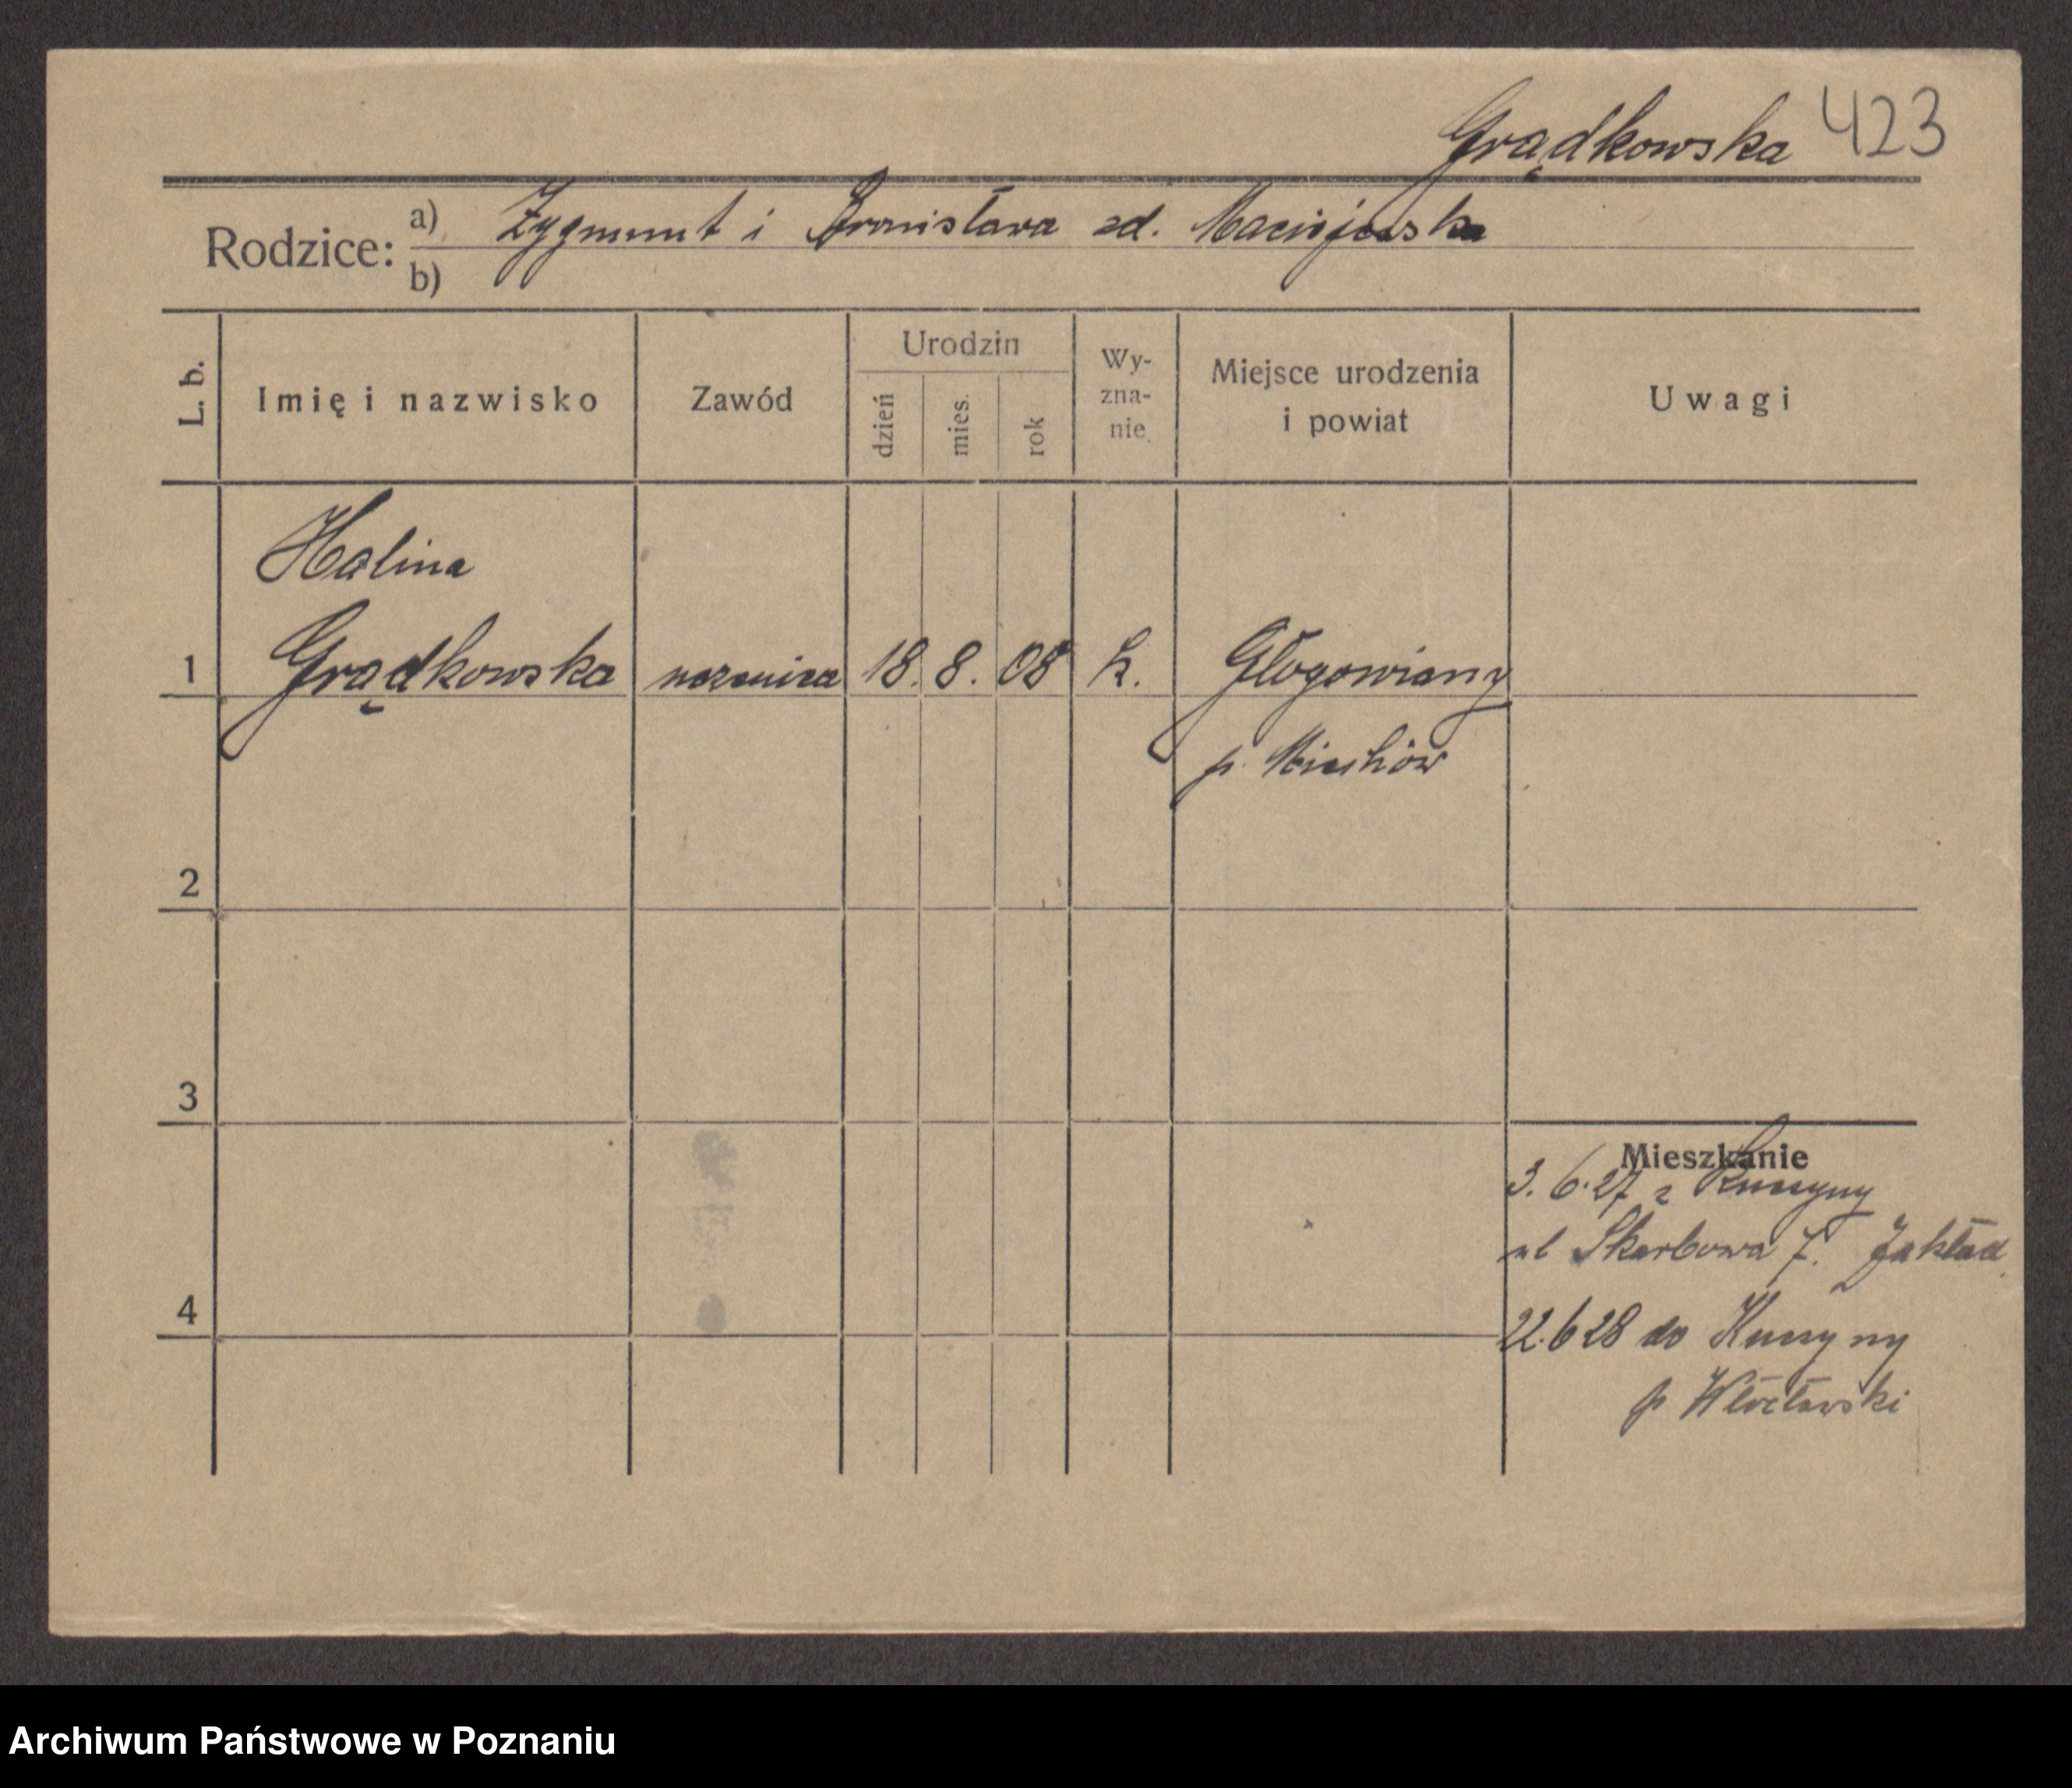 Grądkowska 423
Rodzice: a) Zygmunt i Bronisława zd. Maciejewska
b)
L. b.
Imię i nazwisko
Zawód
Urodzin
dzień
mies.
rok
Wy-
zna-
nie
Miejsce urodzenia
i powiat
Uwagi
Halina
1 Grądkowska uczenica 18. 8. 08 k. Głogowiany
p. Miechów
2
3
Mieszkanie
3. 6. 27 z
ul Skarbowa 7. Zakład
4
22.6 28 do
p Włocławski
Archiwum Państwowe w Poznaniu